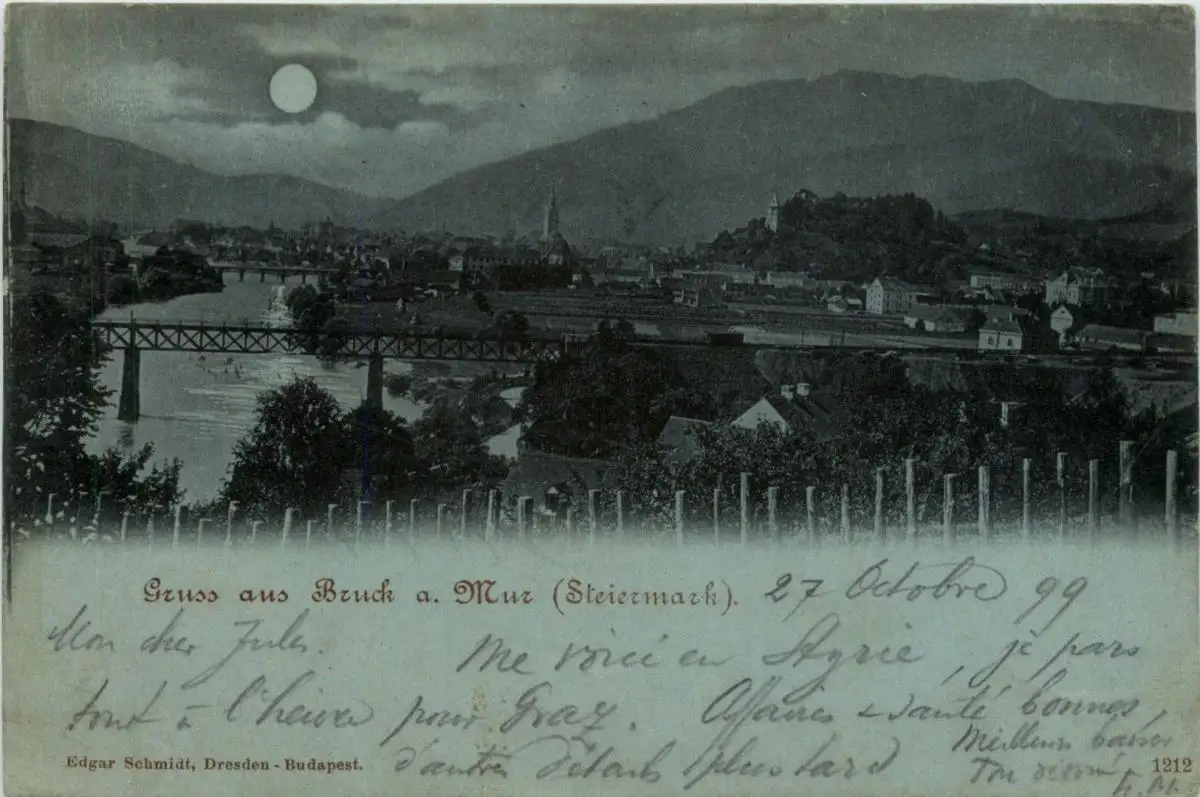 Gruss aus Bruck a. Mur (Steiermark). 27 Octobre 99
Mon cher Jules. Me voici en Styrie, je pars
tout à l'heure pour Graz. Affaires & santé bonnes,
d'autres détails plus tard Meilleurs baisers
Ton
Edgar Schmidt, Dresden - Budapest.
1212